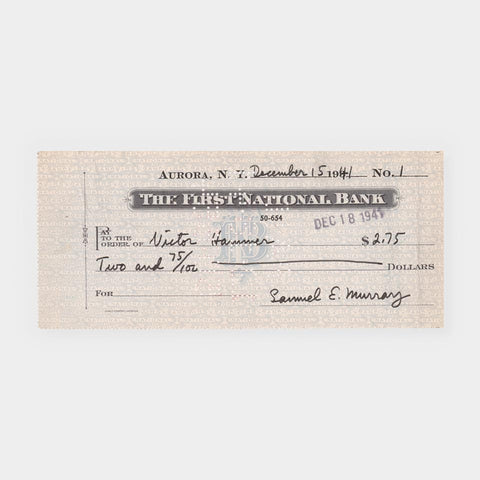 AURORA, N. Y. December 15 1941 No. 1
THE FIRST NATIONAL BANK
50-654
DEC 18 1941
PAY
TO THE
ORDER OF Victor Hammer $2.75
Two and 75/100 DOLLARS
FOR
Samuel E. Murray